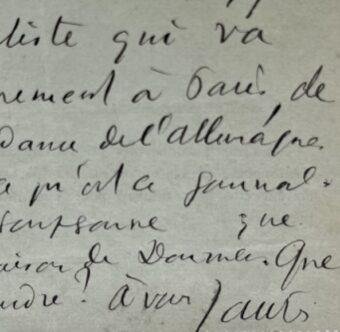 liste qui va
rement à Paris, de
dance de l'allemagne.
qu'est ce journal-
soupçonne que
aison de Doumer. Que
ndre? à vous